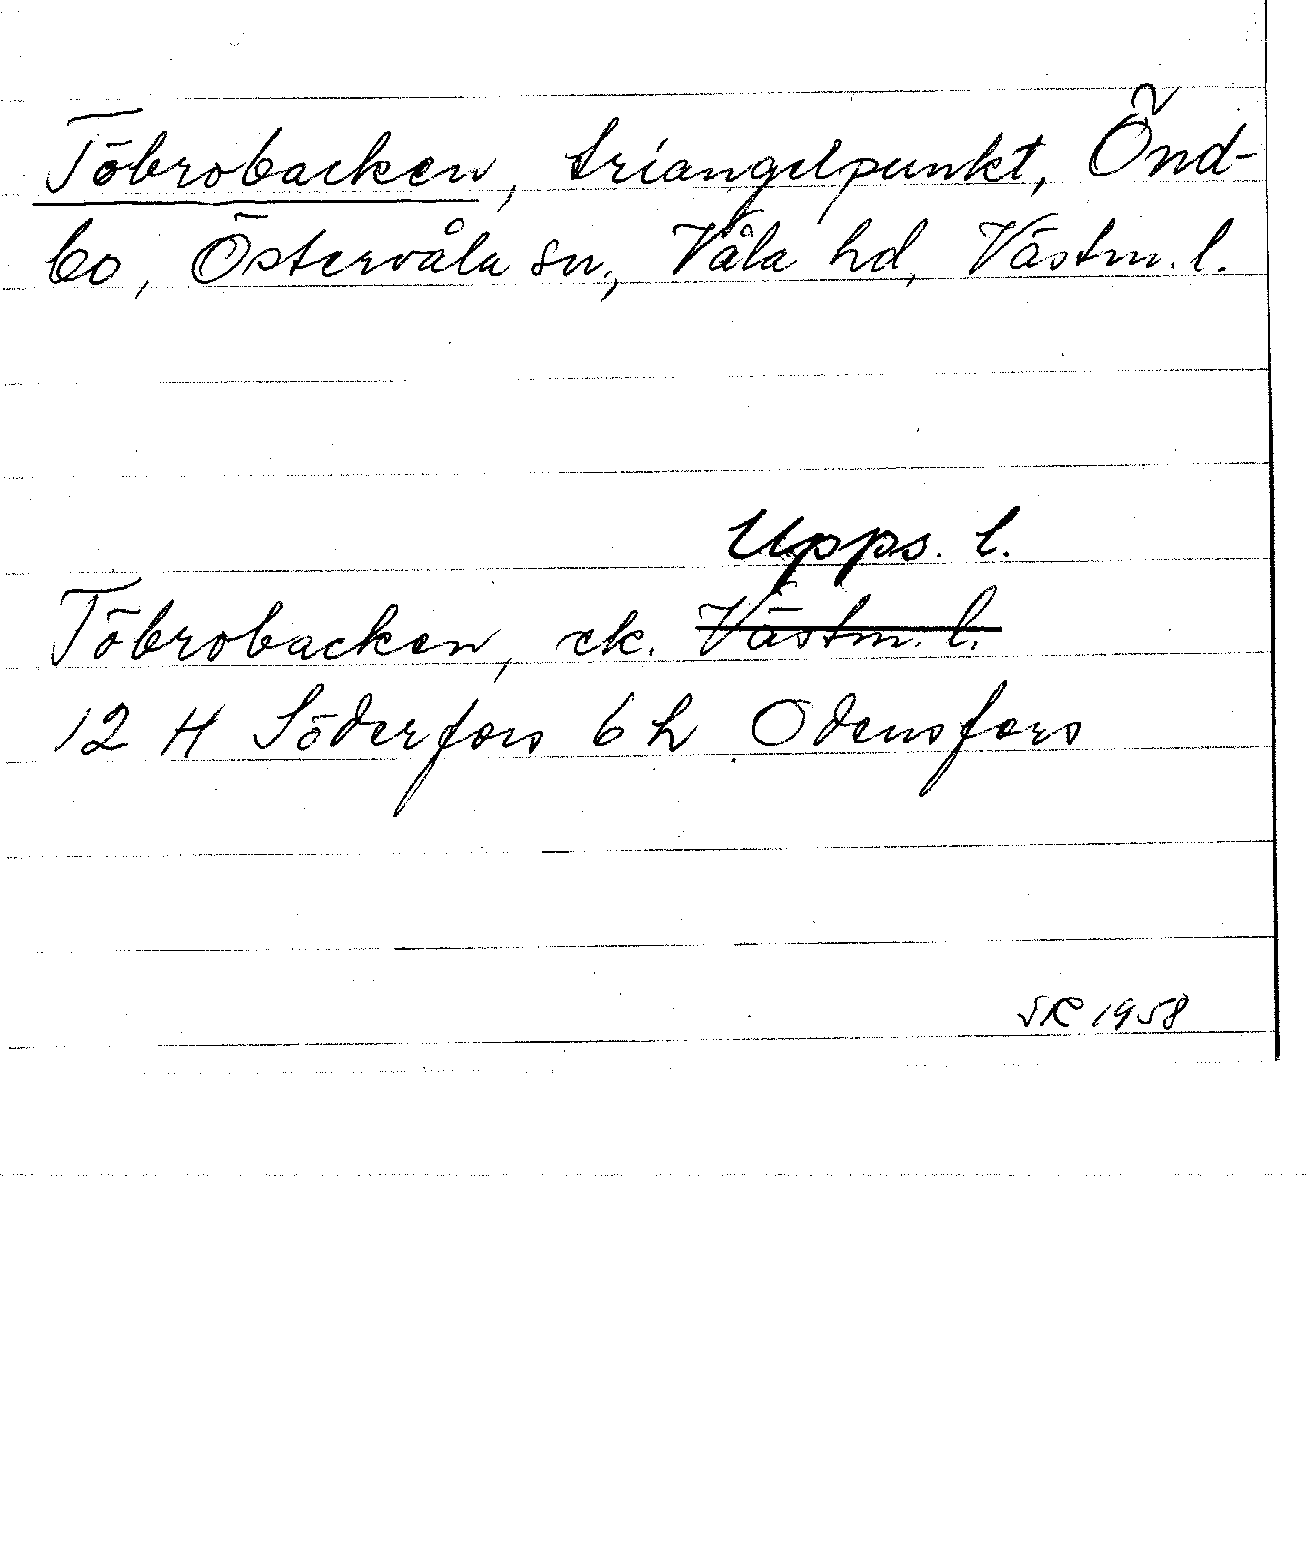 Töbrobacken, triangelpunkt, Önd-
bo, Östervåla sn., Våla hd, Västm. l.
Upps. l.
Töbrobacken, ek. Västm. l.
12 H Söderfors 6 h Odensfors
SR 1958